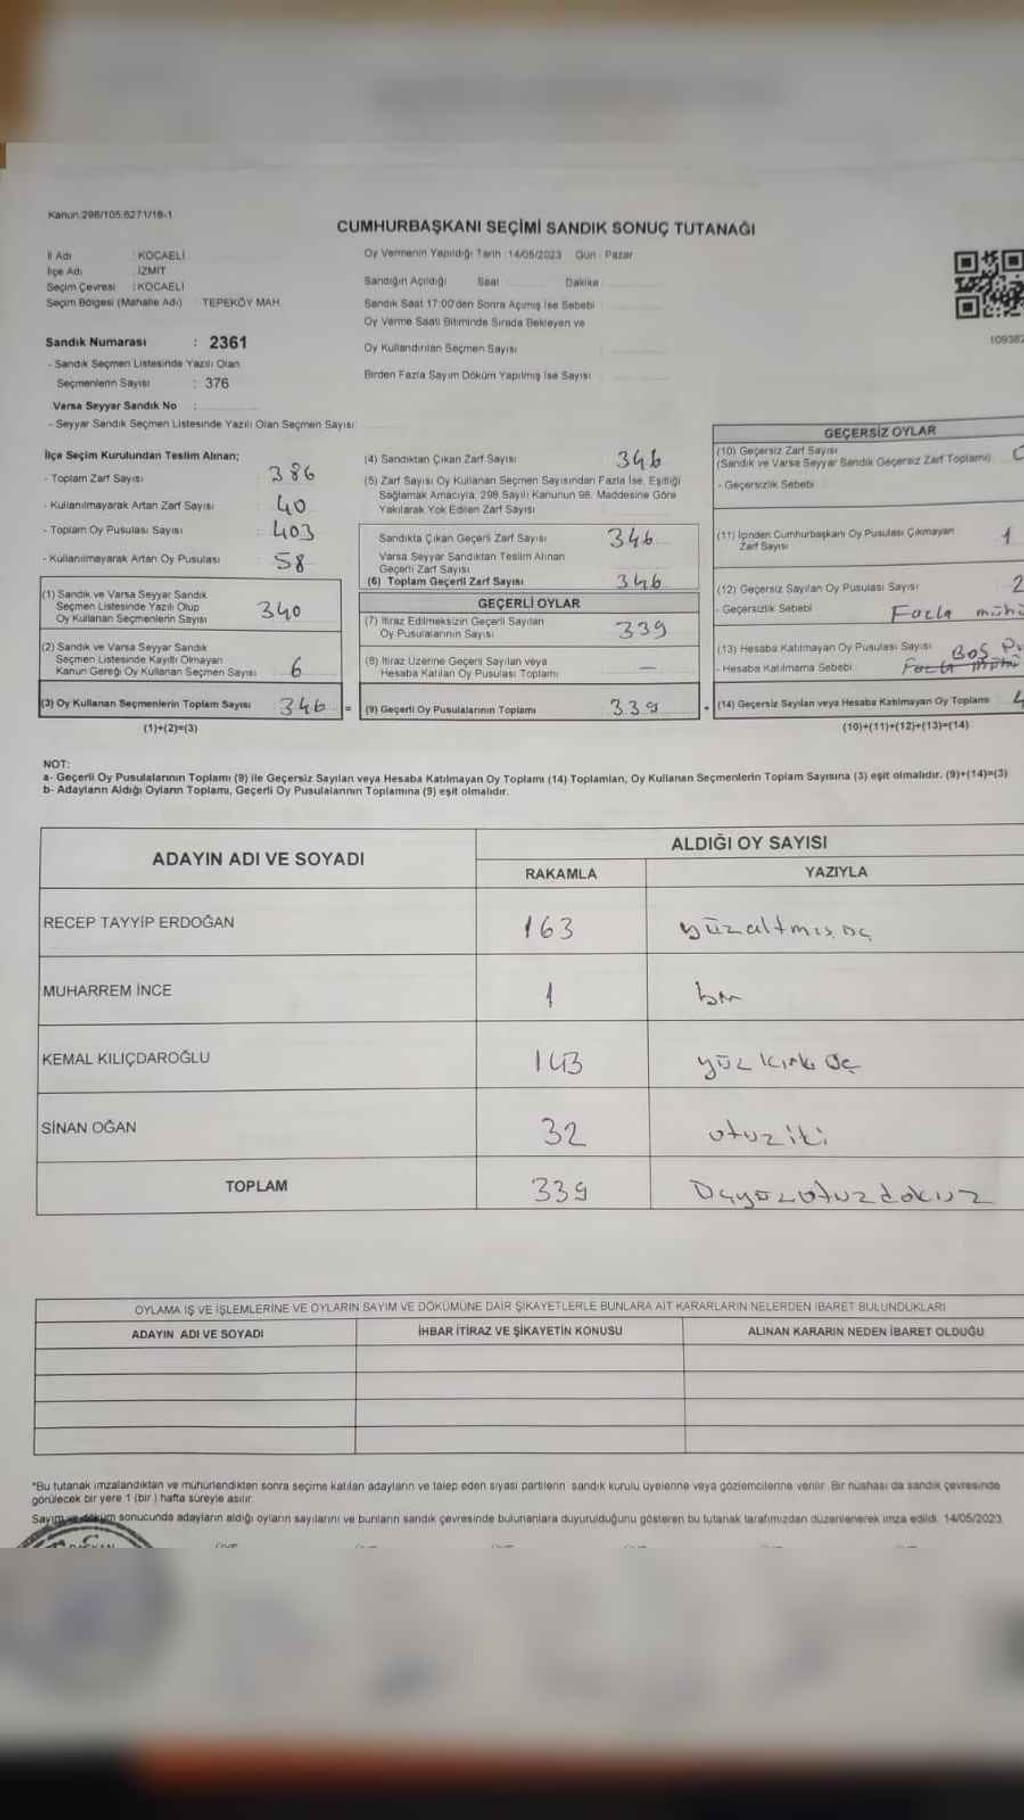 Kanun:298/105;6271/18-1
CUMHURBAŞKANI SEÇİMİ SANDIK SONUÇ TUTANAĞI
İl Adı : KOCAELİ
İlçe Adı : İZMİT
Seçim Çevresi : KOCAELİ
Seçim Bölgesi (Mahalle Adı) TEPEKÖY MAH.
Sandık Numarası : 2361
- Sandık Seçmen Listesinde Yazılı Olan
Seçmenlerin Sayısı : 376
Varsa Seyyar Sandık No :
- Seyyar Sandık Seçmen Listesinde Yazılı Olan Seçmen Sayısı
Oy Vermenin Yapıldığı Tarih : 14/05/2023 Gün : Pazar
Sandığın Açıldığı Saat Dakika
Sandık Saat 17:00'den Sonra Açılmış İse Sebebi
Oy Verme Saati Bitiminde Sırada Bekleyen ve
Oy Kullandırılan Seçmen Sayısı
Birden Fazla Sayım Döküm Yapılmış İse Sayısı
109382
İlçe Seçim Kurulundan Teslim Alınan;
- Toplam Zarf Sayısı : 386
- Kullanılmayarak Artan Zarf Sayısı : 40
- Toplam Oy Pusulası Sayısı : 403
- Kullanılmayarak Artan Oy Pusulası : 58
(1) Sandık ve Varsa Seyyar Sandık
Seçmen Listesinde Yazılı Olup
Oy Kullanan Seçmenlerin Sayısı 340
(2) Sandık ve Varsa Seyyar Sandık
Seçmen Listesinde Kayıtlı Olmayan
Kanun Gereği Oy Kullanan Seçmen Sayısı 6
(3) Oy Kullanan Seçmenlerin Toplam Sayısı 346 =
(1)+(2)=(3)
(4) Sandıktan Çıkan Zarf Sayısı 346
(5) Zarf Sayısı Oy Kullanan Seçmen Sayısından Fazla İse, Eşitliği
Sağlamak Amacıyla, 298 Sayılı Kanunun 98. Maddesine Göre
Yakılarak Yok Edilen Zarf Sayısı
Sandıkta Çıkan Geçerli Zarf Sayısı 346
Varsa Seyyar Sandıktan Teslim Alınan
Geçerli Zarf Sayısı
(6) Toplam Geçerli Zarf Sayısı 346
GEÇERLİ OYLAR
(7) İtiraz Edilmeksizin Geçerli Sayılan
Oy Pusulalarının Sayısı 339
(8) İtiraz Üzerine Geçerli Sayılan veya
Hesaba Katılan Oy Pusulası Toplamı —
(9) Geçerli Oy Pusulalarının Toplamı 339 +
GEÇERSİZ OYLAR
(10) Geçersiz Zarf Sayısı
(Sandık ve Varsa Seyyar Sandık Geçersiz Zarf Toplamı)
- Geçersizlik Sebebi
(11) İçinden Cumhurbaşkanı Oy Pusulası Çıkmayan
Zarf Sayısı 1
(12) Geçersiz Sayılan Oy Pusulası Sayısı 2
- Geçersizlik Sebebi Fazla mühü
(13) Hesaba Katılmayan Oy Pusulası Sayısı BOŞ Pu
- Hesaba Katılmama Sebebi Fazla
(14) Geçersiz Sayılan veya Hesaba Katılmayan Oy Toplamı 4
(10)+(11)+(12)+(13)=(14)
NOT:
a- Geçerli Oy Pusulalarının Toplamı (9) ile Geçersiz Sayılan veya Hesaba Katılmayan Oy Toplamı (14) Toplamları, Oy Kullanan Seçmenlerin Toplam Sayısına (3) eşit olmalıdır. (9)+(14)=(3)
b- Adayların Aldığı Oyların Toplamı, Geçerli Oy Pusulalarının Toplamına (9) eşit olmalıdır.
ADAYIN ADI VE SOYADI ALDIĞI OY SAYISI
RAKAMLA YAZIYLA
RECEP TAYYİP ERDOĞAN 163 yüzaltmış üç
MUHARREM İNCE 1 bir
KEMAL KILIÇDAROĞLU 143 yüz kırk üç
SİNAN OĞAN 32 otuziki
TOPLAM 339 üçyüzotuzdokuz
OYLAMA İŞ VE İŞLEMLERİNE VE OYLARIN SAYIM VE DÖKÜMÜNE DAİR ŞİKAYETLERLE BUNLARA AİT KARARLARIN NELERDEN İBARET BULUNDUKLARI
ADAYIN ADI VE SOYADI İHBAR İTİRAZ VE ŞİKAYETİN KONUSU ALINAN KARARIN NEDEN İBARET OLDUĞU
*Bu tutanak imzalandıktan ve mühürlendikten sonra seçime katılan adayların ve talep eden siyasi partilerin sandık kurulu üyelerine veya gözlemcilerine verilir. Bir nüshası da sandık çevresinde
görülecek bir yere 1 (bir) hafta süreyle asılır.
Sayım ve döküm sonucunda adayların aldığı oyların sayılarını ve bunların sandık çevresinde bulunanlara duyurulduğunu gösteren bu tutanak tarafımızdan düzenlenerek imza edildi. 14/05/2023